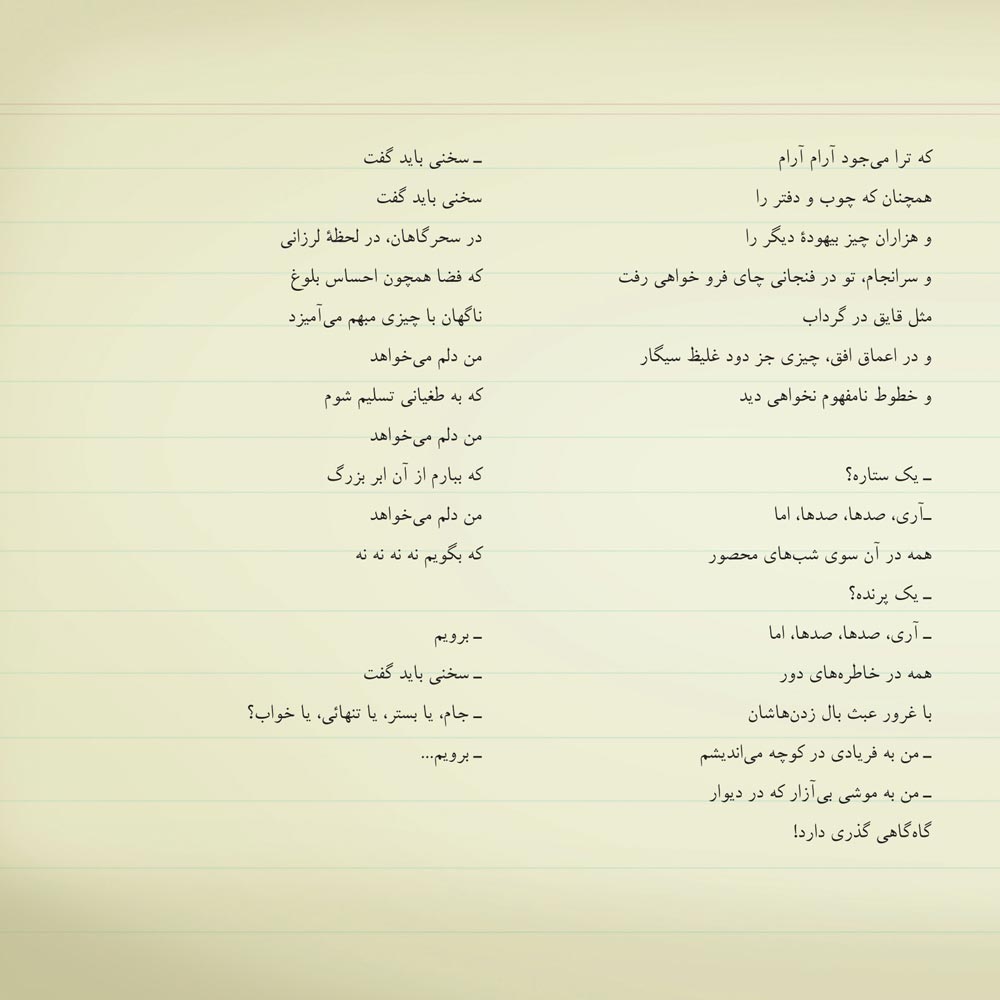 که ترا می‌جود آرام آرام
همچنان که چوب و دفتر را
و هزاران چیز بیهودهٔ دیگر را
و سرانجام، تو در فنجانی چای فرو خواهی رفت
مثل قایق در گرداب
و در اعماق افق، چیزی جز دود غلیظ سیگار
و خطوط نامفهوم نخواهی دید
ـ یک ستاره؟
ـآری، صدها، صدها، اما
همه در آن سوی شب‌های محصور
ـ یک پرنده؟
ـ آری، صدها، صدها، اما
همه در خاطره‌های دور
با غرور عبث بال زدن‌هاشان
ـ من به فریادی در کوچه می‌اندیشم
ـ من به موشی بی‌آزار که در دیوار
گاه‌گاهی گذری دارد!
ـ سخنی باید گفت
سخنی باید گفت
در سحرگاهان، در لحظهٔ لرزانی
که فضا همچون احساس بلوغ
ناگهان با چیزی مبهم می‌آمیزد
من دلم می‌خواهد
که به طغیانی تسلیم شوم
من دلم می‌خواهد
که ببارم از آن ابر بزرگ
من دلم می‌خواهد
که بگویم نه نه نه نه
ـ برویم
ـ سخنی باید گفت
ـ جام، یا بستر، یا تنهائی، یا خواب؟
ـ برویم...